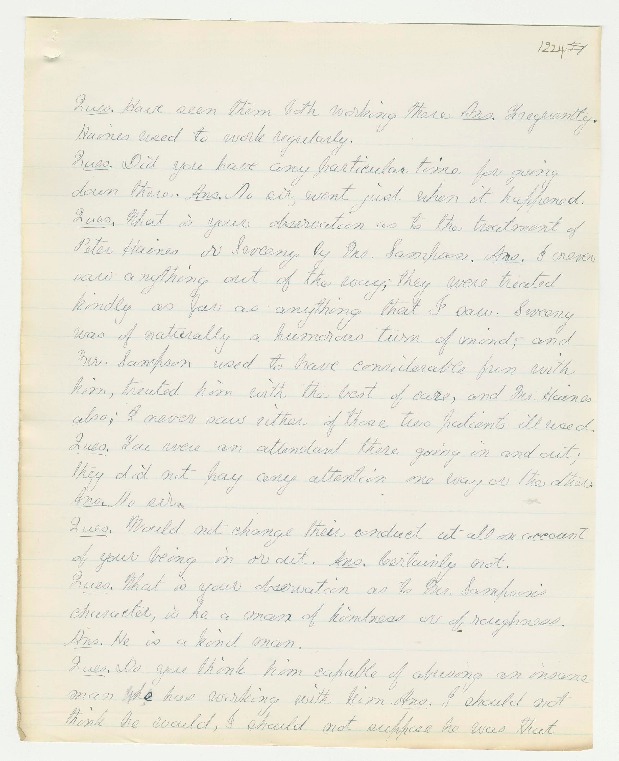 1224 #7
Ques. Have seen them both working there Ans. Frequently.
Haines used to work regularly.
Ques. Did you have any particular time for going
down there. Ans. No sir, went just when it happened.
Ques. What is your observation as to the treatment of
Peter Haines or Sweeny by Mr. Sampson. Ans. I never
saw anything out of the way; they were treated
kindly as far as anything that I saw. Sweeny
was of naturally a humorous turn of mind; and
Mr. Sampson used to have considerable fun with
him, treated him with the best of care, and Mr. Haines
also; I never saw either of those two patients ill used.
Ques. You were an attendant there going in and out;
they did not pay any attention one way or the other.
Ans. No sir.
Ques. Would not change their conduct at all on account
of your being in or out. Ans. Certainly not.
Ques. What is your observation as to Mr. Sampson's
character, is he a man of kindness or of roughness.
Ans. He is a kind man.
Ques. Do you think him capable of abusing an insane
man he has working with him Ans. I should not
think he would, I should not suppose he was that